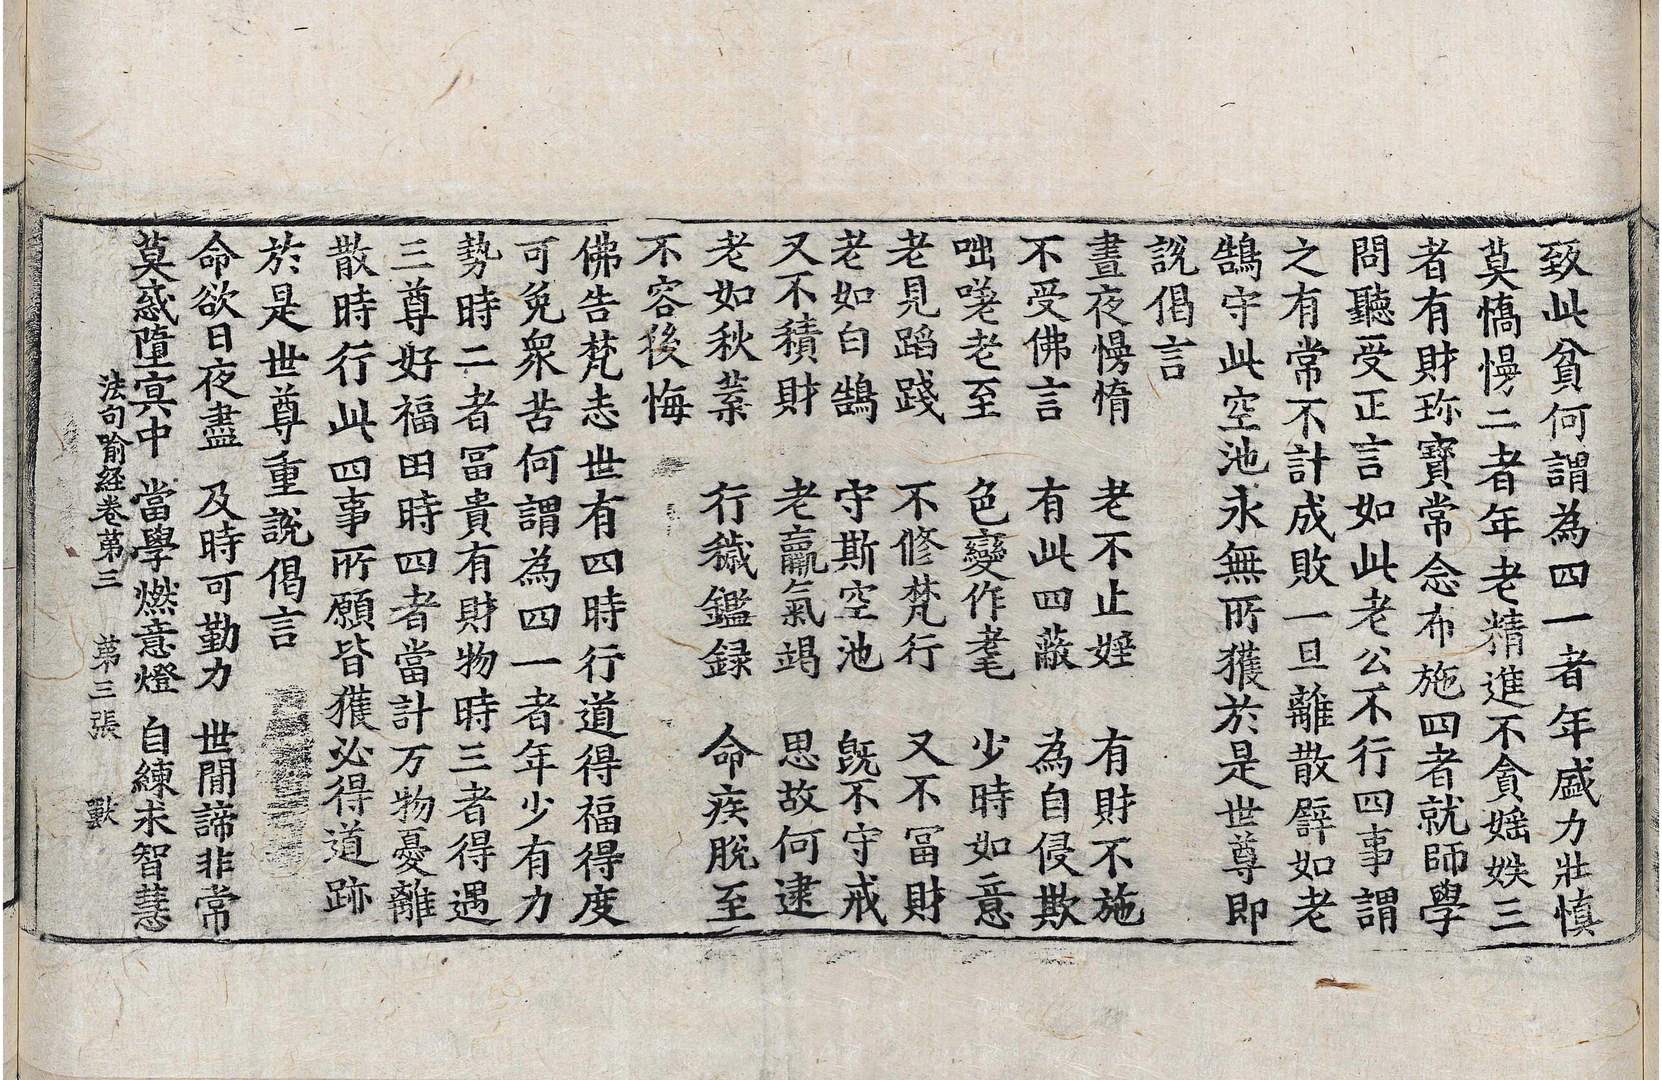 致此貧何謂為四一者年盛力壯慎
莫憍慢二者年老精進不貪婬妷三
者有財珎寶常念布施四者就師學
問聽受正言如此老公不行四事謂
之有常不計成敗一旦離散譬如老
鵠守此空池永無所獲於是世尊即
說偈言
晝夜慢惰　老不止婬　有財不施
不受佛言　有此四蔽　為自侵欺
咄嗟老至　色變作耄　少時如意
老見蹈踐　不修梵行　又不冨財
老如白鵠　守斯空池　既不守戒
又不積財　老羸氣竭　思故何逮
老如秋葉　行穢鑑録　命疾脫至
不容後悔
佛告梵志世有四時行道得福得度
可免衆苦何謂為四一者年少有力
勢時二者冨貴有財物時三者得遇
三尊好福田時四者當計万物憂離
散時行此四事所願皆獲必得道跡
於是世尊重說偈言
命欲日夜盡　及時可勤力　世間諦非常
莫惑墮冥中　當學燃意燈　自練求智慧
法句喻経卷第三　第三張　獸